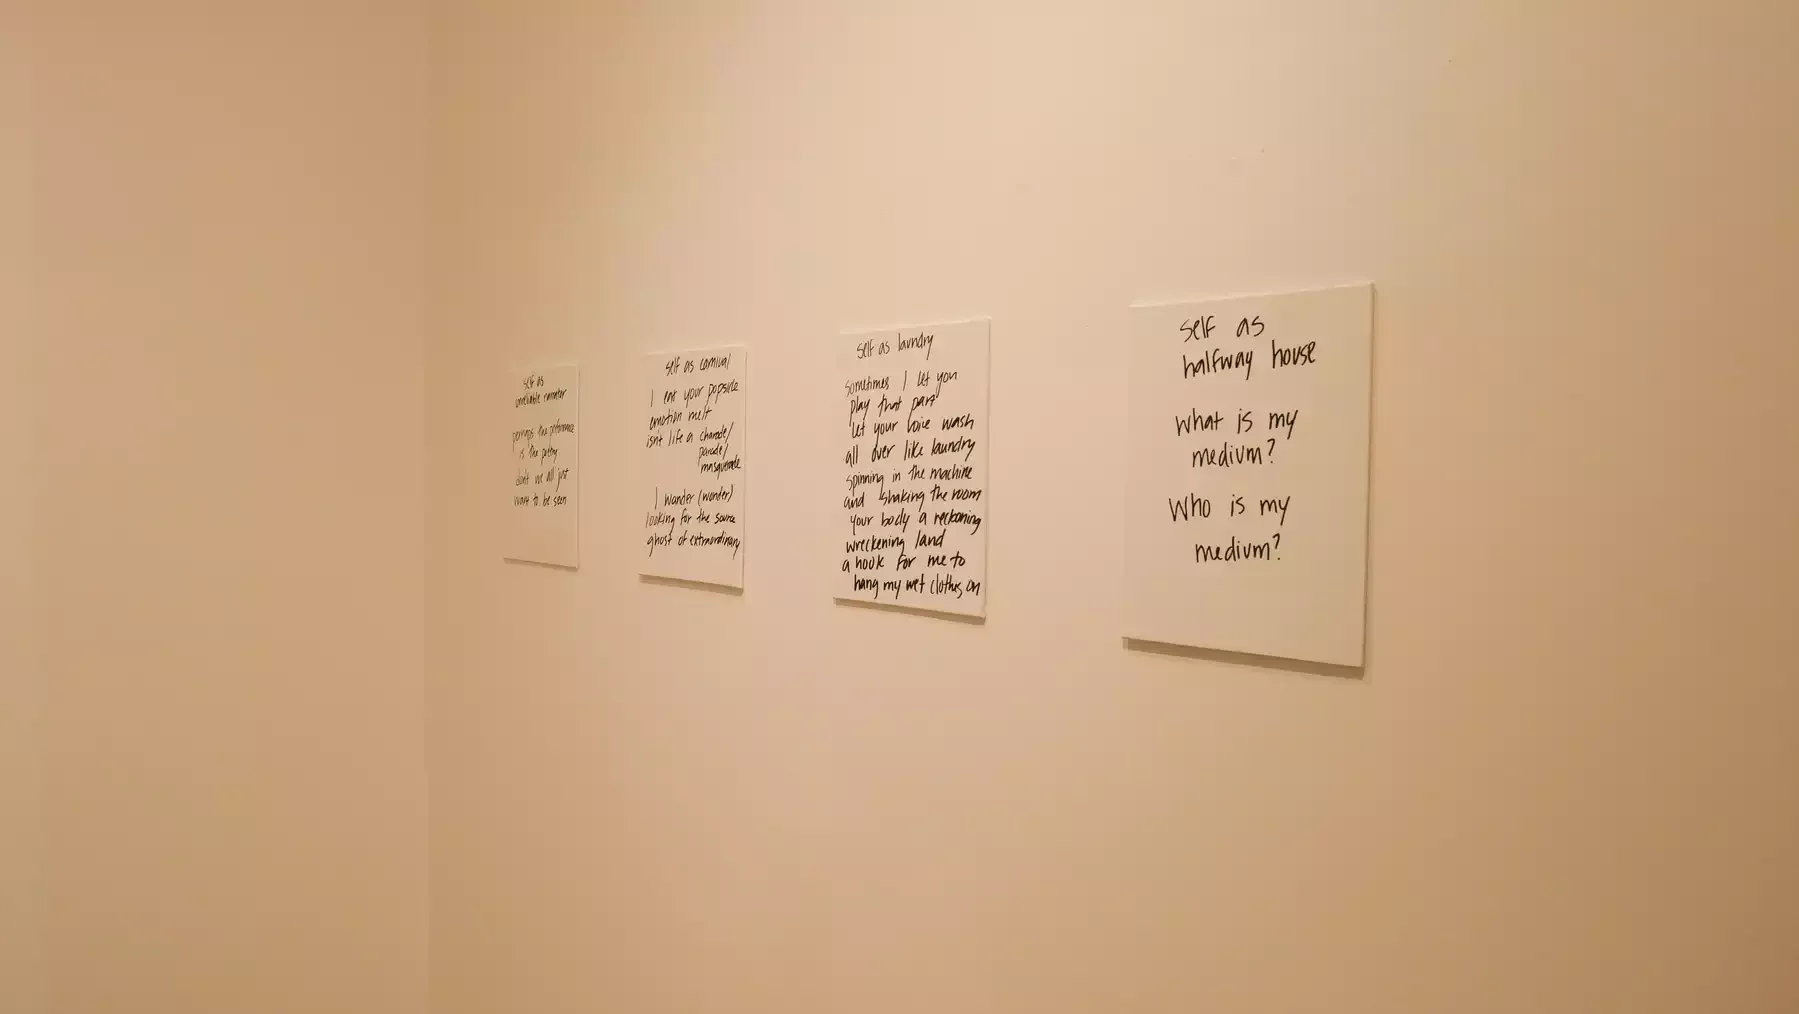 self as
unreliable narrator
perhaps the performance
is the poetry
don't we all just
want to be seen
self as carnival
I eat your popsicle
emotion melt
isn't life a charade/
parade/
masquerade
I wander (wonder)
looking for the source
ghost of extraordinary
self as laundry
sometimes I let you
play that part
let your voice wash
all over like laundry
spinning in the machine
and shaking the room
your body a reckoning
wreckening land
a hook for me to
hang my wet clothes on
self as
halfway house
What is my
medium?
Who is my
medium?